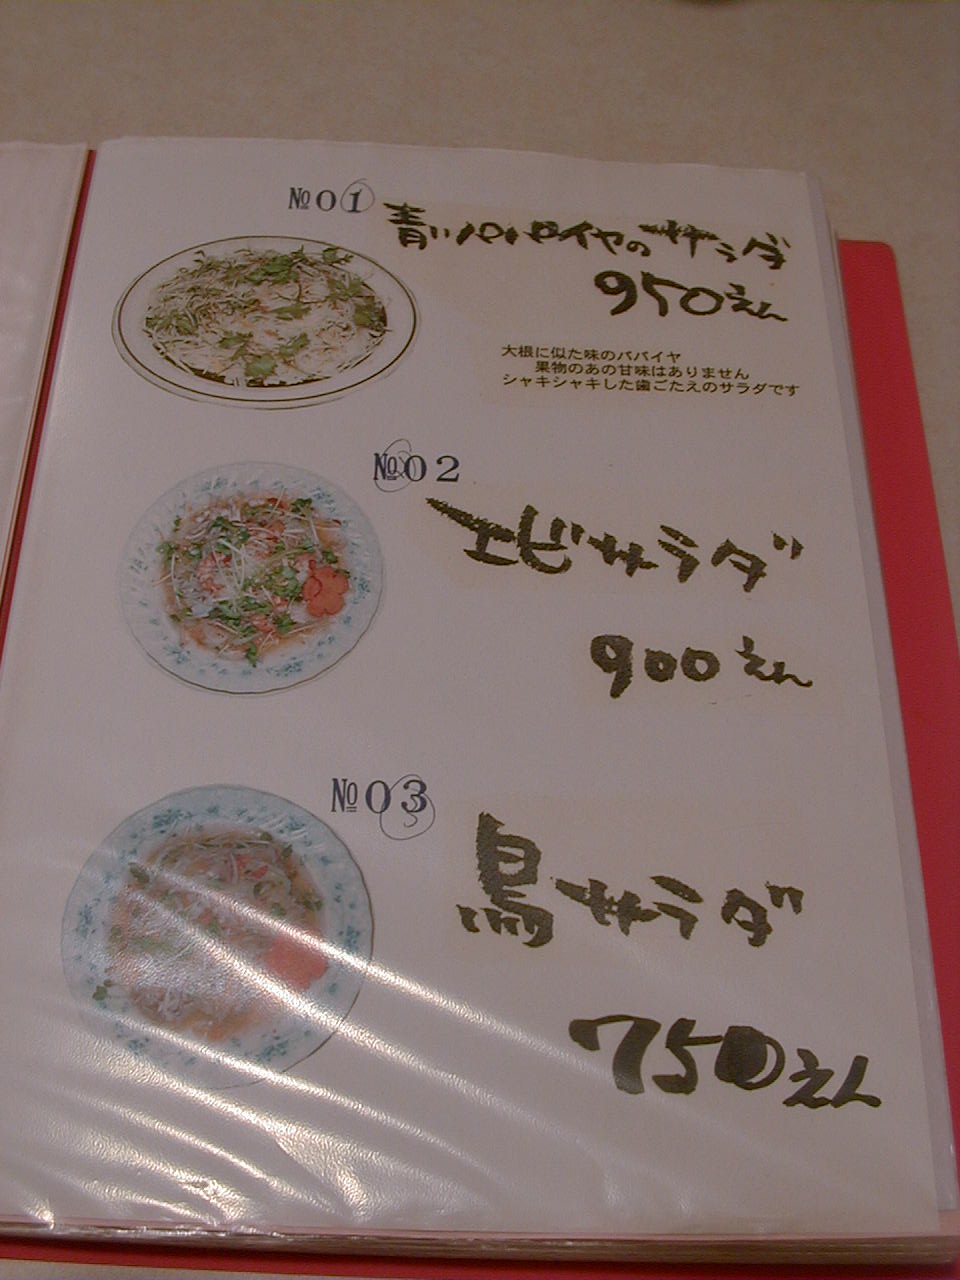 №01
青いパパイヤのサラダ
950えん
大根に似た味のパパイヤ
果物のあの甘味はありません
シャキシャキした歯ごたえのサラダです
№02
エビサラダ
900えん
№03
鳥サラダ
750えん